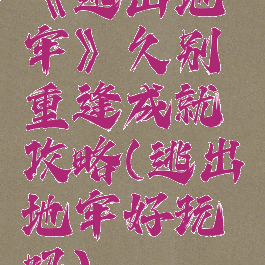 《逃出地
牢》久别
重逢成就
攻略(逃出
地牢好玩
吗)